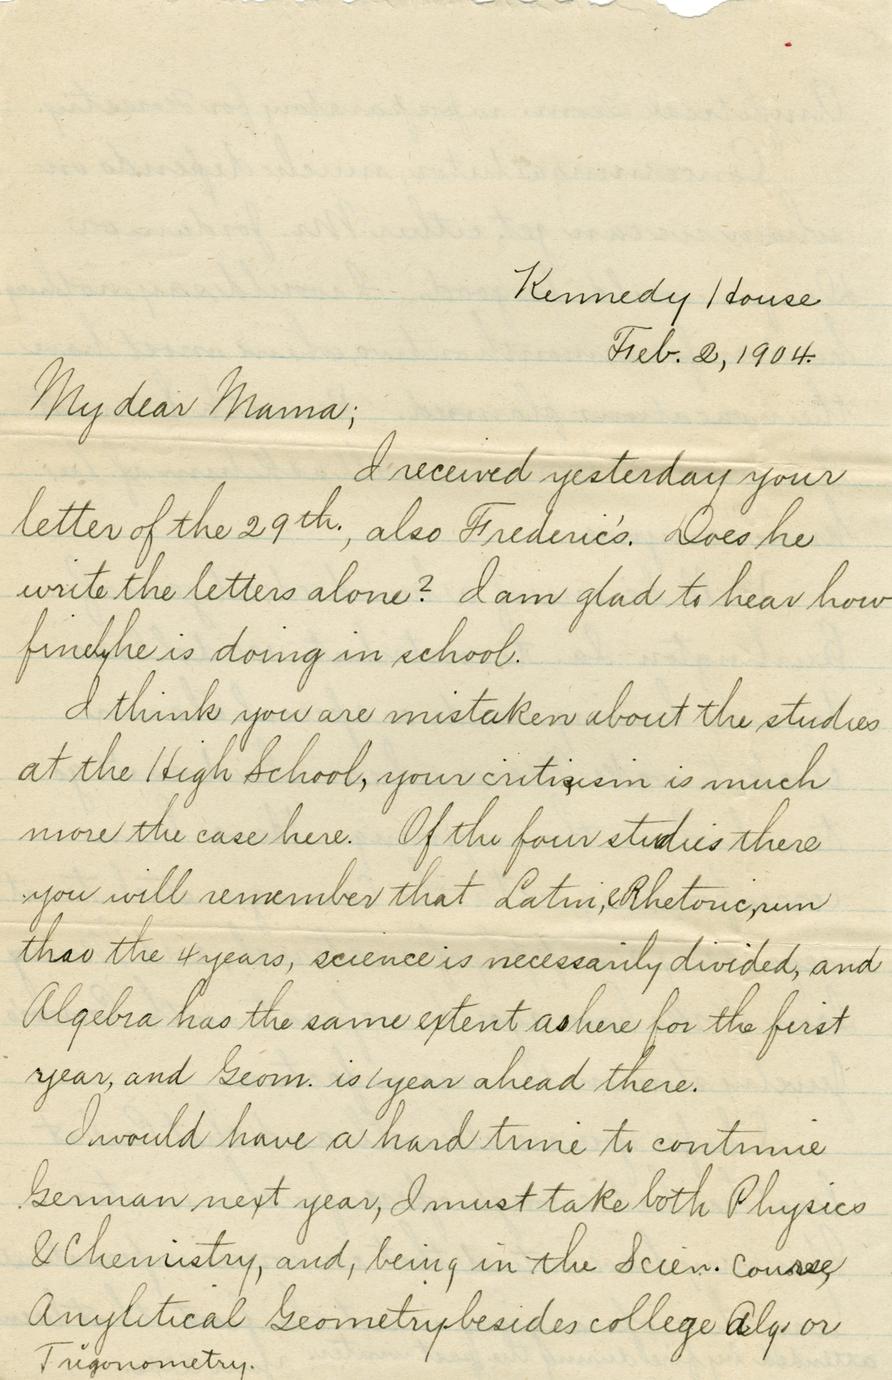 Kennedy House
Feb. 2, 1904.
My dear Mama;
I received yesterday your
letter of the 29th., also Frederic's. Does he
write the letters alone? I am glad to hear how
finely he is doing in school.
I think you are mistaken about the studies
at the High School, your criticism is much
more the case here. Of the four studies there
you will remember that Latin, & Rhetoric, run
thro the 4 years, science is necessarily divided, and
Algebra has the same extent as here for the first
year, and Geom. is 1 year ahead there.
I would have a hard time to continue
German next year, I must take both Physics
& Chemistry, and, being in the Scien. course,
Anylitical Geometry besides college Alg. or
Trigonometry.